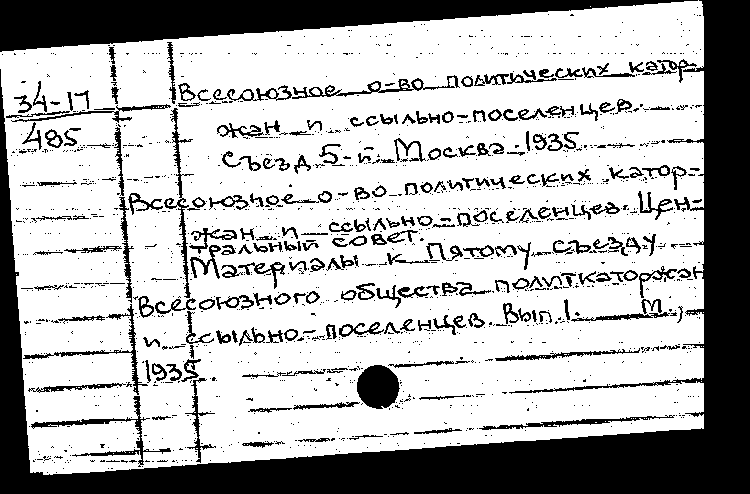 34-17
485
Всесоюзное о-во политических катор-
жан и ссыльно-поселенцев.
Съезд 5-й. Москва. 1935
Всесоюзное о-во политических катор-
жан и ссыльно-поселенцев. Цен-
тральный совет.
Материалы к Пятому съезду
Всесоюзного общества политкаторжан
и ссыльно-поселенцев. Вып. 1. М.,
1935